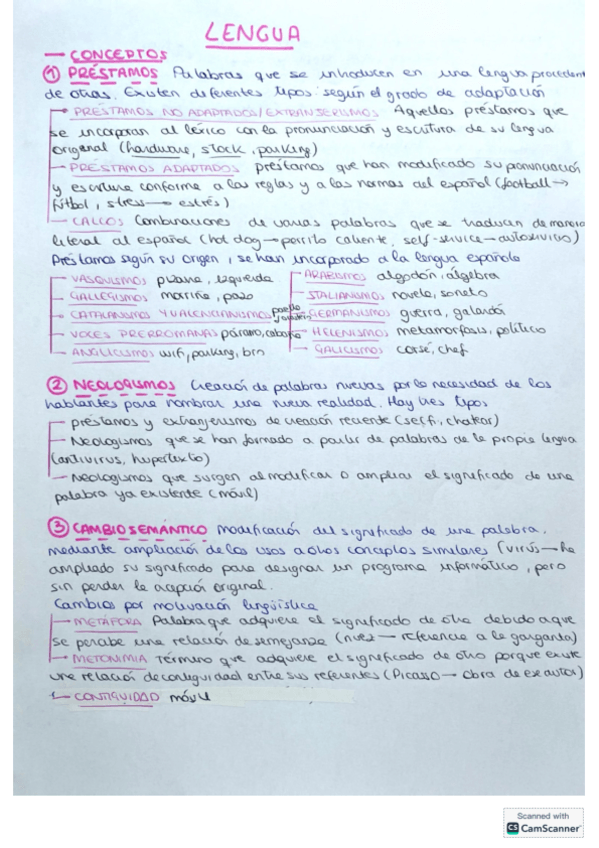 LENGUA
— CONCEPTOS
① PRÉSTAMOS Palabras que se introducen en una lengua procedent
de otras. Existen diferentes tipos según el grado de adaptación
PRÉSTAMOS NO ADAPTADOS/EXTRANJERISMOS Aquellos préstamos que
se incorporan al léxico con la pronunciación y escritura de su lengua
original (hardware, stock, parking)
PRÉSTAMOS ADAPTADOS préstamos que han modificado su pronunciación
y escritura conforme a las reglas y a las normas del español (football →
fútbol, stress → estrés)
CALCOS Combinaciones de varias palabras que se traducen de manera
literal al español (hot dog → perrito caliente, self-service → autoservicio)
Préstamos según su origen, se han incorporado a la lengua española
VASQUISMOS pizarra, izquierda
ARABISMOS algodón, álgebra
GALLEGUISMOS morriña, pazo
ITALIANISMO novela, soneto
CATALANISMOS Y VALENCIANISMOS paella
GERMANISMOS guerra, galardón
VOCES PRERROMANAS páramo,
HELENISMOS metamorfosis, político
ANGLICISMOS wifi, parking,
GALICISMOS corsé, chef
② NEOLOGISMOS Creación de palabras nuevas por la necesidad de los
hablantes para nombrar una nueva realidad. Hay tres tipos
préstamos y extranjerismos de creación reciente (selfi, chatear)
Neologismos que se han formado a partir de palabras de la propia lengua
(antivirus, hipertexto)
Neologismos que surgen al modificar o ampliar el significado de una
palabra ya existente (móvil)
③ CAMBIO SEMÁNTICO modificación del significado de una palabra,
mediante ampliación de los usos a otros conceptos similares (virus → ha
ampliado su significado para designar un programa informático, pero
sin perder la acepción original.
Cambios por motivación lingüística
METÁFORA Palabra que adquiere el significado de otra debido a que
se percibe una relación de semejanza (nuez — referencia a la garganta)
METONIMIA Término que adquiere el significado de otro porque existe
una relación de contigüidad entre sus referentes (Picasso → obra de ese autor)
CONTIGUIDAD móvil
Scanned with
CS CamScanner